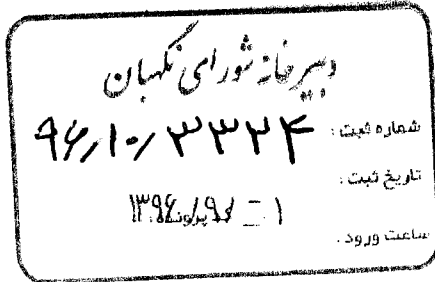 دبیرخانه شورای نگهبان
شماره ثبت: ۹۶/۱۰/۳۳۲۴
تاریخ ثبت:
ساعت ورود.